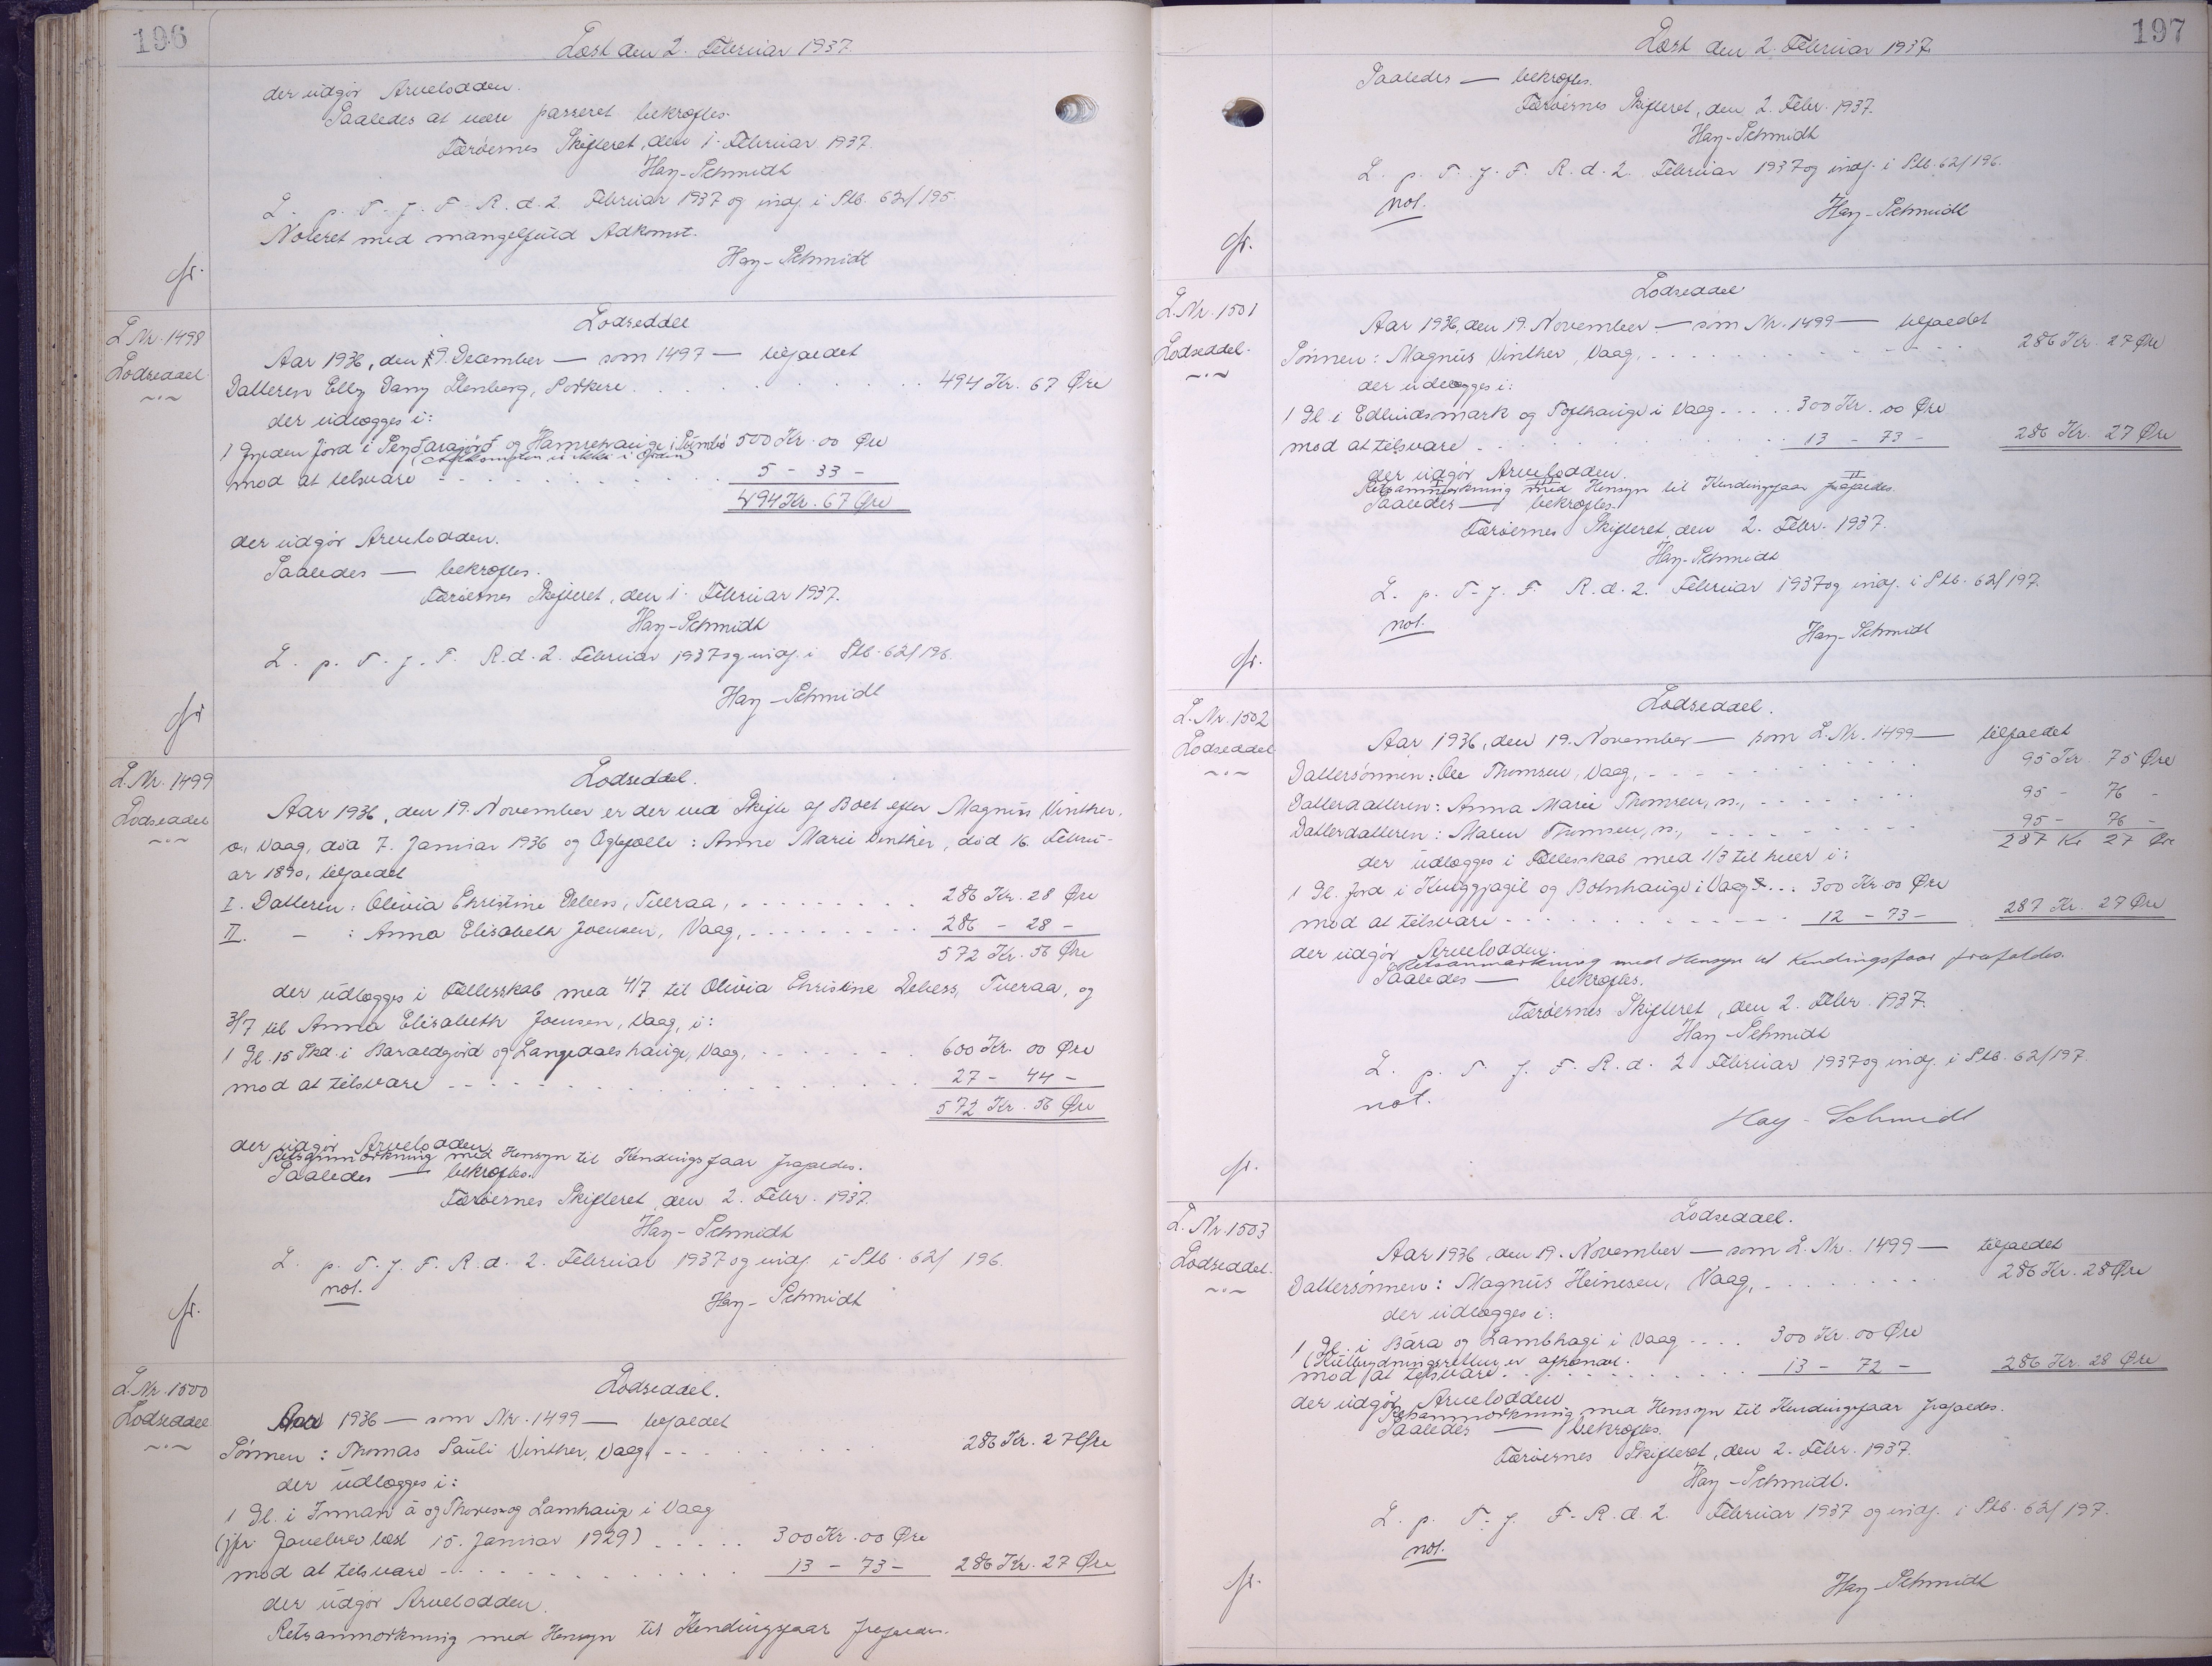 196
Læst den 2. Februar 1937.
der udgør Arvelodden.
Saaledes at være passeret bekræftes.
Færøernes Skifteret, den 1. Februar 1937.
Hay-Schmidt
L. p. T. f. F. R. d. 2. Februar 1937 og indf. i Stb. 62/195
Noteret med mangelfuld Adkomst.
Hay-Schmidt
L Nr. 1498
Lodseddel
Lodseddel
Aar 1936, den 19. December — som 1497 — tilfaldet
Datteren Elly Dany Stenberg, Porkere . . . 494 Kr. 67 Øre
der udlægges i:
1 Gylden Jord i og Hamrehauge i Sumbø 500 Kr. 00 Øre
(Adkomsten er ikke i Orden)
mod at tilsvare . . . 5 - 33 -
494 Kr. 67 Øre
der udgør Arvelodden.
Saaledes — bekræftes.
Færøernes Skifteret, den 1. Februar 1937.
Hay-Schmidt
L. p. T. f. F. R. d. 2. Februar 1937 og indf. i Stb. 62/196.
Hay-Schmidt
L. Nr. 1499
Lodseddel
Lodseddel.
Aar 1936, den 19. November er der ved Skifte af Boet efter Magnus Vinther,
Vaag, død 7. Januar 1936 og Ægtefælle: Anne Marie Vinther, død 16. Febru-
ar 1890, tilfaldet
I. Datteren: Olivia Christine Debess, Tveraa, . . . 286 Kr. 28 Øre
II. - : Anna Elisabeth Joensen, Vaag, . . . 286 - 28 -
572 Kr. 56 Øre
der udlægges i Fællesskab med 4/7 til Olivia Christine Debess, Tveraa, og
3/7 til Anna Elisabeth Joensen, Vaag, i:
1 Gl. 15 Skd. i Baraldgjord og Langedals hauge, Vaag, . . . 600 Kr. 00 Øre
mod at tilsvare . . . 27 - 44 -
572 Kr. 56 Øre
der udgør Arvelodden
Retsanmærkning med Hensyn til Kendingsfaar frafaldes.
Saaledes — bekræftes.
Færøernes Skifteret, den 2. Febr. 1937.
Hay-Schmidt
L. p. T. f. F. R. d. 2. Februar 1937 og indf. i Stb. 62/196.
not.
Hay-Schmidt
L. Nr. 1500
Lodseddel
Lodseddel.
Aar 1936 — som Nr. 1499 — tilfaldet
Sønnen: Thomas Pauli Vinther, Vaag, . . . 286 Kr. 27 Øre
der udlægges i:
1 Gl. i Innan á og Lamhauge i Vaag
(jfr. Gavebrev læst 15. Januar 1929) . . . 300 Kr. 00 Øre
mod at tilsvare . . . 13 - 73 - 286 Kr. 27 Øre
der udgør Arvelodden.
Retsanmærkning med Hensyn til Kendingsfaar frafaldes.
197
Læst den 2. Februar 1937.
Saaledes — bekræftes.
Færøernes Skifteret, den 2. Febr. 1937.
Hay-Schmidt
L. p. T. f. F. R. d. 2. Februar 1937 og indf. i Stb. 62/196.
not.
Hay-Schmidt
L. Nr. 1501
Lodseddel.
Lodseddel
Aar 1936, den 19. November — som Nr. 1499 — tilfaldet
Sønnen: Magnus Vinther, Vaag, . . . 286 Kr. 27 Øre
der udlægges i:
1 Gl. i Edluidsmark og Tofthauge i Vaag . . . 300 Kr. 00 Øre
mod at tilsvare . . . 13 - 73 - 286 Kr. 27 Øre
der udgør Arvelodden.
Retsanmærkning med Hensyn til Kendingsfaar frafaldes.
Saaledes — bekræftes.
Færøernes Skifteret, den 2. Febr. 1937.
Hay-Schmidt
L. p. T. f. F. R. d. 2. Februar 1937 og indf. i Stb. 62/197.
not.
Hay-Schmidt
L. Nr. 1502
Lodseddel
Lodseddel.
Aar 1936, den 19. November — som L. Nr. 1499 — tilfaldet
Dattersønnen: Ole Thomsen, Vaag, . . . 95 Kr. 75 Øre
Datterdatteren: Anna Marie Thomsen, s., . . . 95 - 76 -
Datterdatteren: Maren Thomsen, s., . . . 95 - 76 -
287 Kr 27 Øre
der udlægges i Fællesskab med 1/3 til hver i:
1 Gl. Jord i Kluggjagil og Botnhauge i Vaag . . . 300 Kr 00 Øre
mod at tilsvare . . . 12 - 73 - 287 Kr. 27 Øre
der udgør Arvelodden.
Retsanmærkning med Hensyn til Kendingsfaar frafaldes.
Saaledes — bekræftes.
Færøernes Skifteret, den 2. Febr. 1937.
Hay-Schmidt
L. p. T. f. F. R. d. 2 Februar 1937 og indf. i Stb. 62/197.
not.
Hay-Schmidt
L. Nr. 1503
Lodseddel.
Lodseddel.
Aar 1936, den 19. November — som L. Nr. 1499 — tilfaldet
Dattersønnen: Magnus Heinesen, Vaag, . . . 286 Kr. 28 Øre
der udlægges i:
1 Gl. i Bára og Lambhagi i Vaag . . . 300 Kr. 00 Øre
er afhændet.
mod at tilsvare . . . 13 - 72 - 286 Kr. 28 Øre
der udgør Arvelodden
Retsanmærkning med Hensyn til Kendingsfaar frafaldes.
Saaledes — bekræftes.
Færøernes Skifteret, den 2. Febr. 1937.
Hay-Schmidt.
L. p. T. f. F. R. d. 2. Februar 1937 og indf. i Stb. 62/197.
not.
Hay-Schmidt